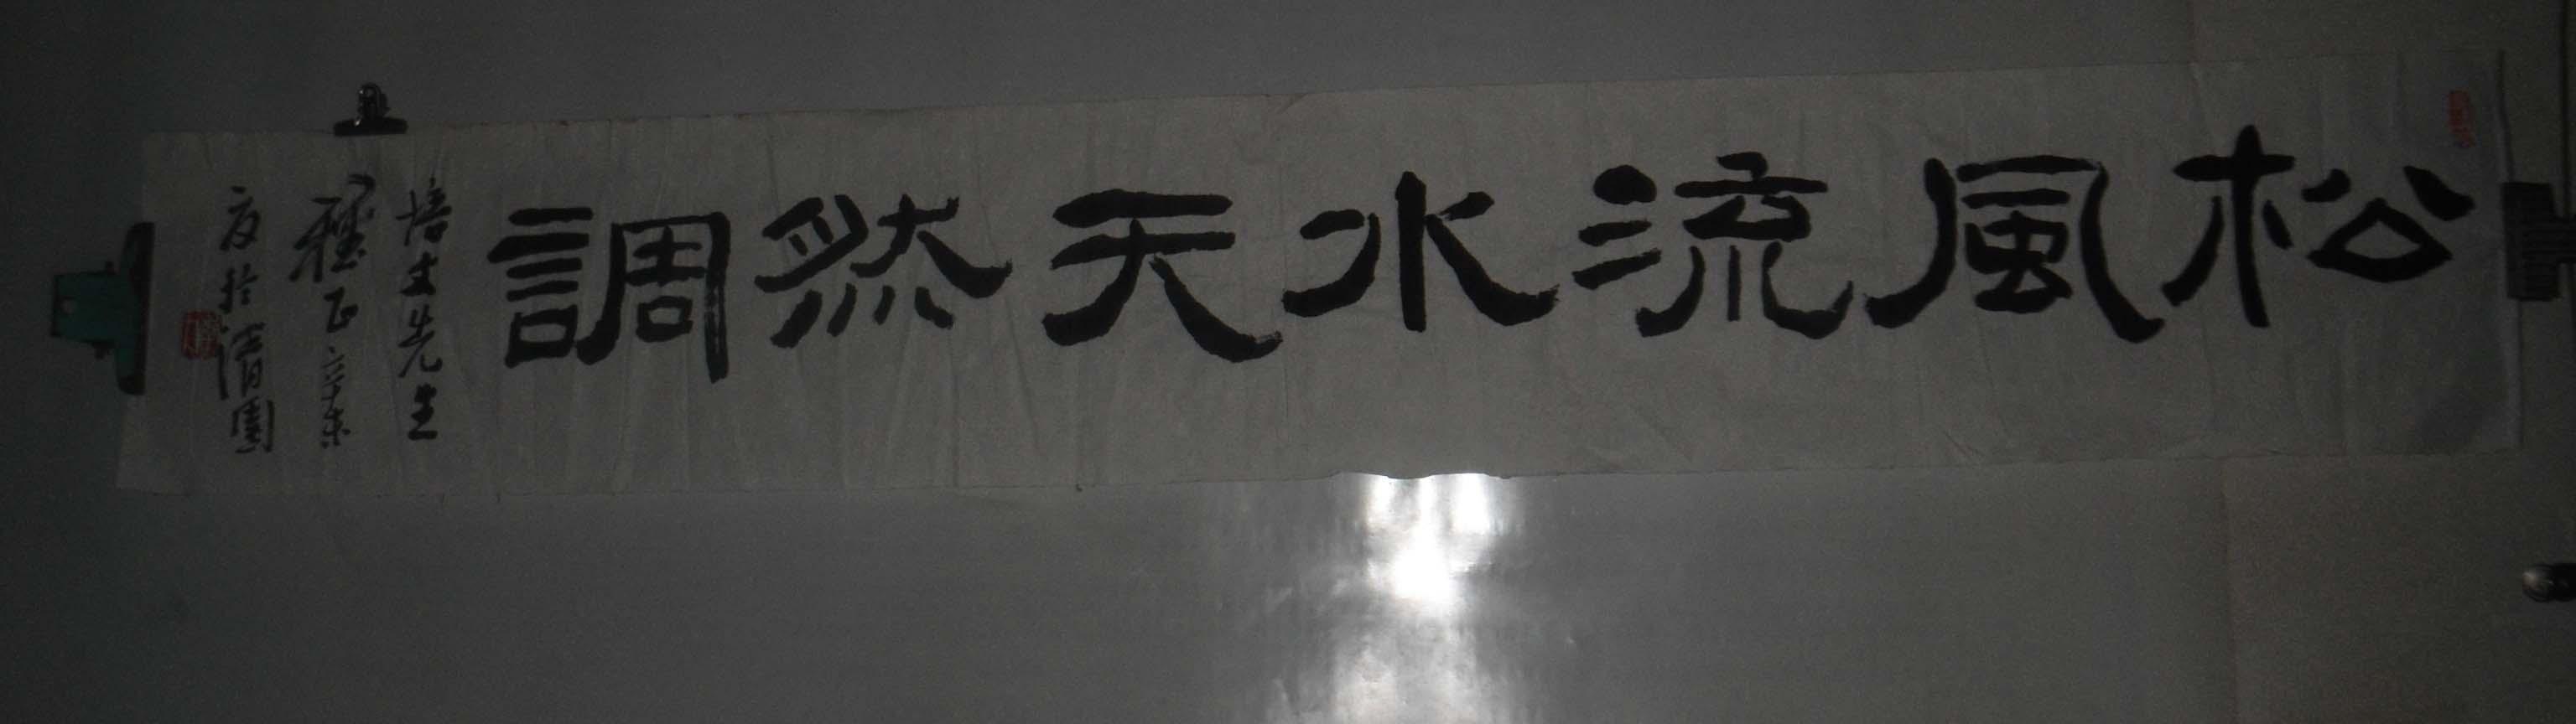 松風流水天然調
培文先生
雅正辛未
夏於清園